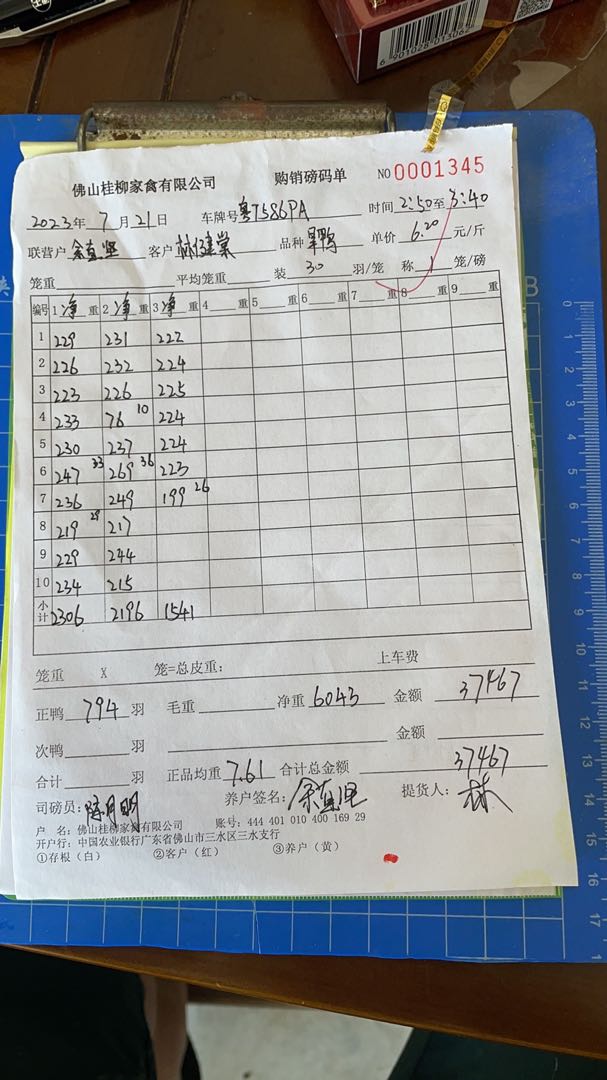 6 901028 013062
佛山桂柳家禽有限公司 购销磅码单 NO 0001345
2023年 7月21日 车牌号 粤T586PA 时间 2:50至3:40
联营户 余直坚 客户 林健棠 品种 旱鸭 单价 6.20 元/斤
笼重 平均笼重 装 30 羽/笼 称 1 笼/磅
编号 1净重 2净重 3净重 4 重 5 重 6 重 7 重 8 重 9 重
1 229 231 222
2 226 232 224
3 223 226 225
4 233 76 10 224
5 230 237 224
6 247 33 269 36 223
7 236 249 199 26
8 219 29 217
9 229 244
10 234 215
小计 2306 2196 1541
笼重 X 笼=总皮重: 上车费
正鸭 794 羽 毛重 净重 6043 金额 37467
次鸭 羽 金额
合计 羽 正品均重 7.61 合计总金额 37467
司磅员: 陈月明 养户签名: 余直坚 提货人: 林
户 名: 佛山桂柳家禽有限公司 账号: 444 401 010 400 169 29
开户行: 中国农业银行广东省佛山市三水区三水支行
①存根(白) ②客户(红) ③养户(黄)
B
0 1 2 3 4 5 6 7 8 9 10 11 12 13 14 15 16 17